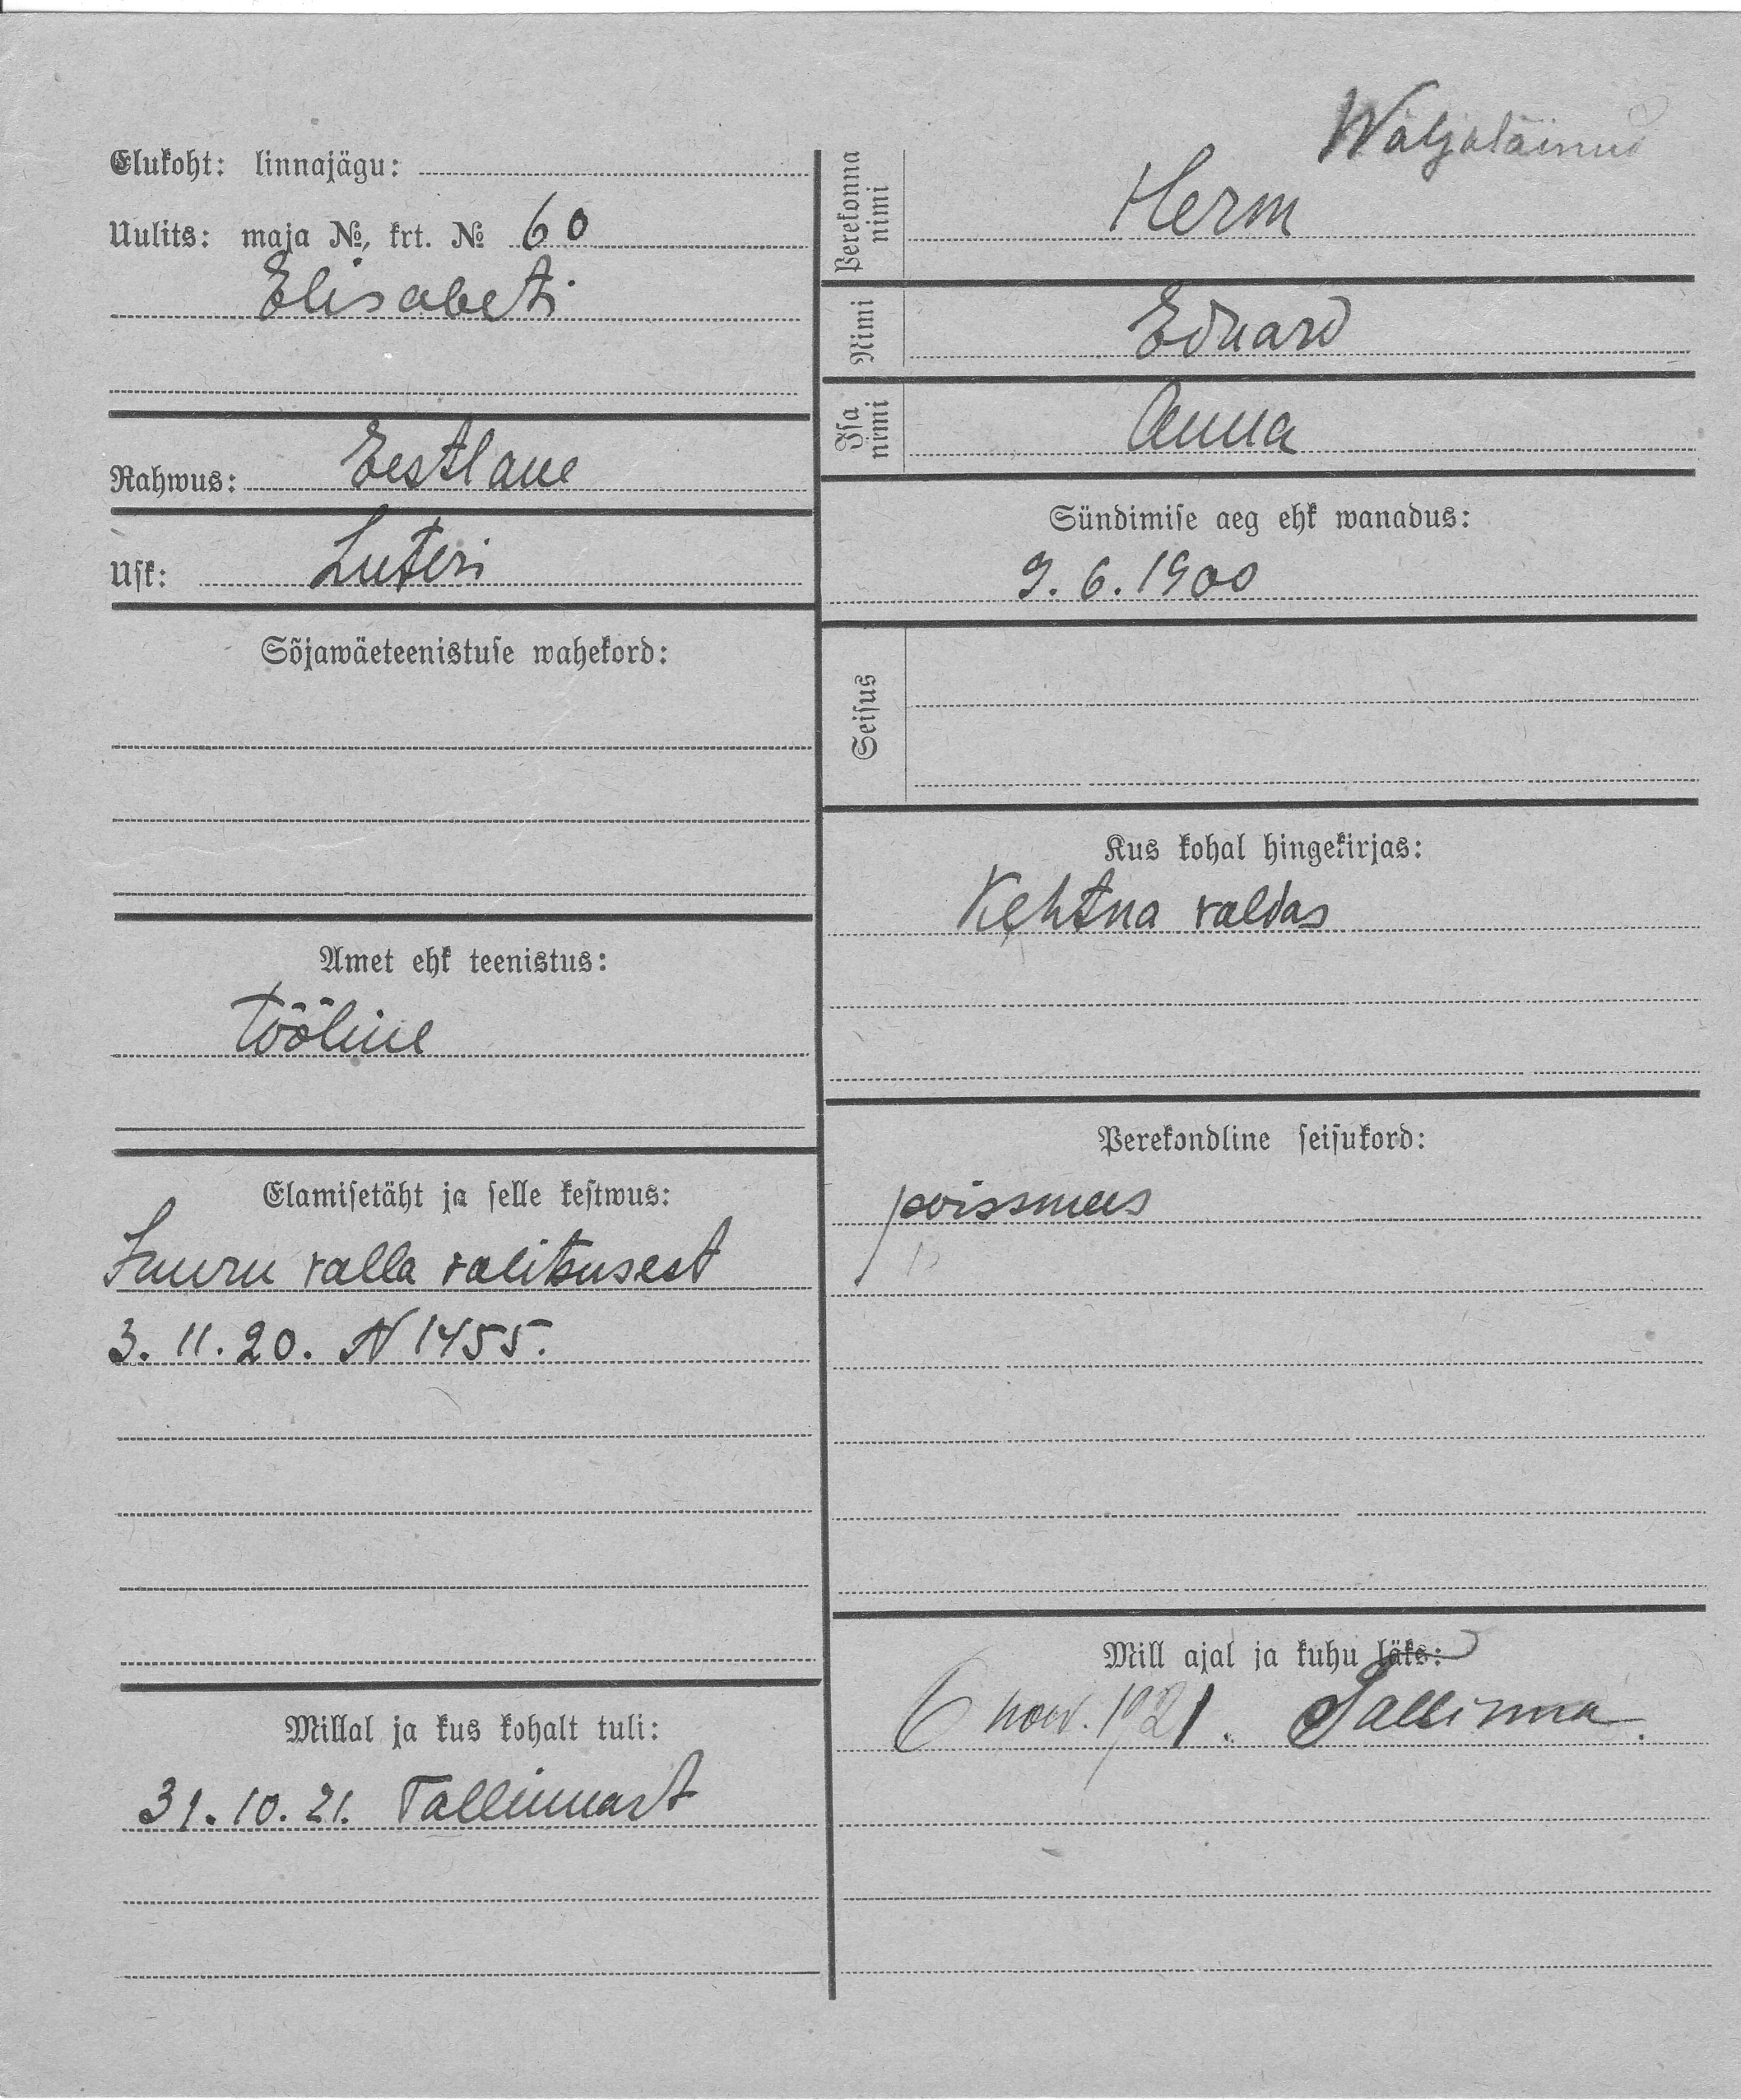 Elukoht: linnajägu:
Uulits: maja №, krt. № 60
Elisabeti
Rahwus: Eestlane
Usk: Luteri
Sõjawäeteenistuse wahekord:
Amet ehk teenistus:
Tööline
Elamisetäht ja selle kestwus:
valla valitsusest
3. 11. 20. N 1455.
Millal ja kus kohalt tuli:
31. 10. 21. Tallinnast
Wäljaläinud
Perekonna nimi
Herm
Nimi
Eduard
Isa nimi
Anna
Sündimise aeg ehk wanadus:
9. 6. 1900
Seisus
Kus kohal hingekirjas:
Kehtna valdas
Perekondline seisukord:
poissmees
Mill ajal ja kuhu läks:
6 now. 1921. Tallinna.